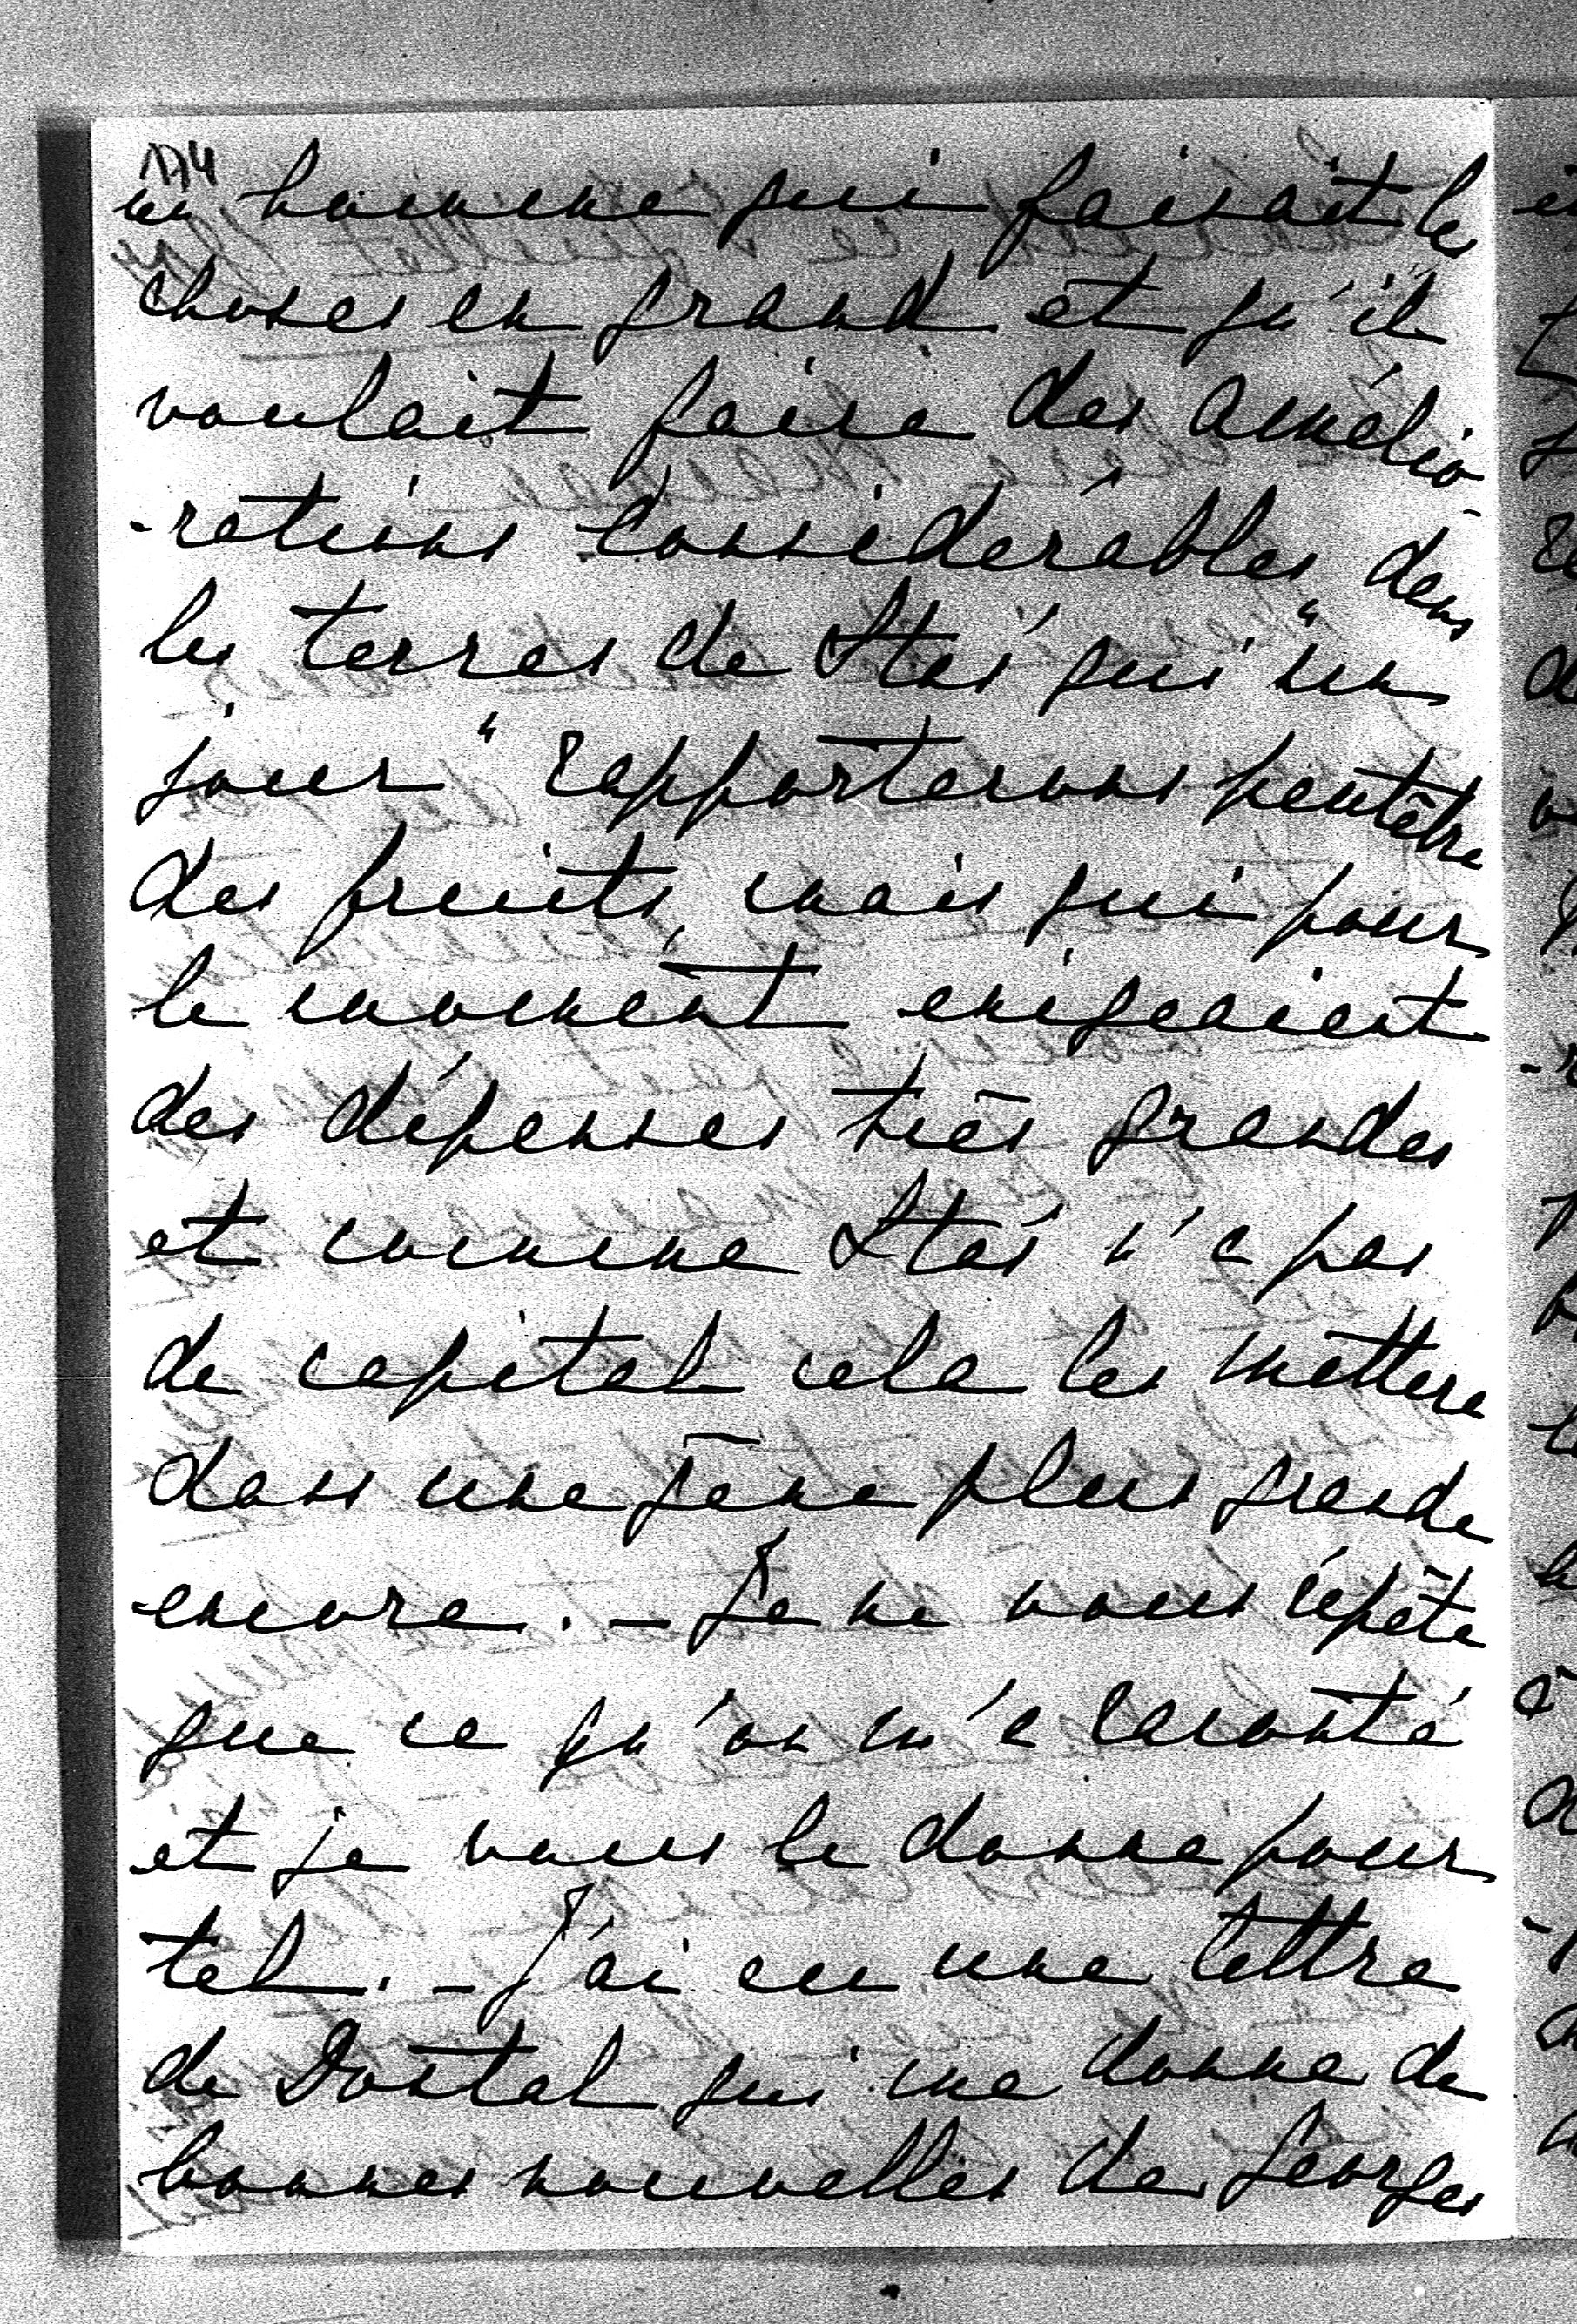 174
un homme qui faisait les
choses en grand et qu'il
voulait faire des amélio
-rations considérables dans
les terres de Stas' qui "un
jour" rapporterons peutêtre
des fruits, mais qui pour
le moment exigeaient
des dépenses très grandes
et comme Stas' n'a pas
de capital cela les mettera
dans une gêne plus grande
encore. - Je ne vous répète
que ce qu'on m'a raconté
et je vous le donne pour
tel. - J'ai eu une lettre
de Dostal qui me donne de
bonnes nouvelles de Georges